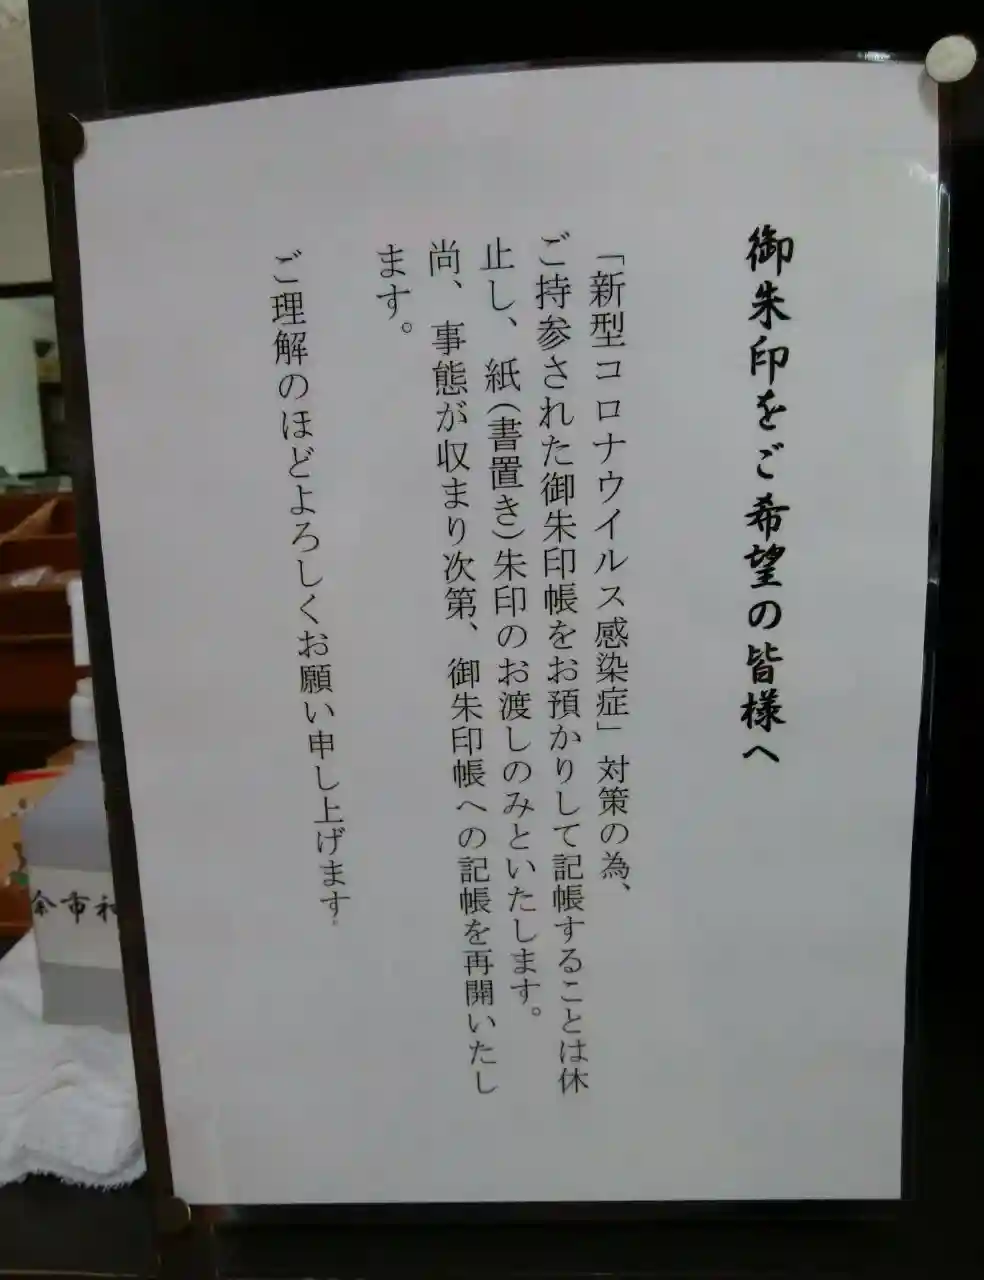 御朱印をご希望の皆様へ
「新型コロナウイルス感染症」対策の為、
ご持参された御朱印帳をお預かりして記帳することは休
止し、紙(書置き)朱印のお渡しのみといたします。
尚、事態が収まり次第、御朱印帳への記帳を再開いたし
ます。
ご理解のほどよろしくお願い申し上げます
余市神